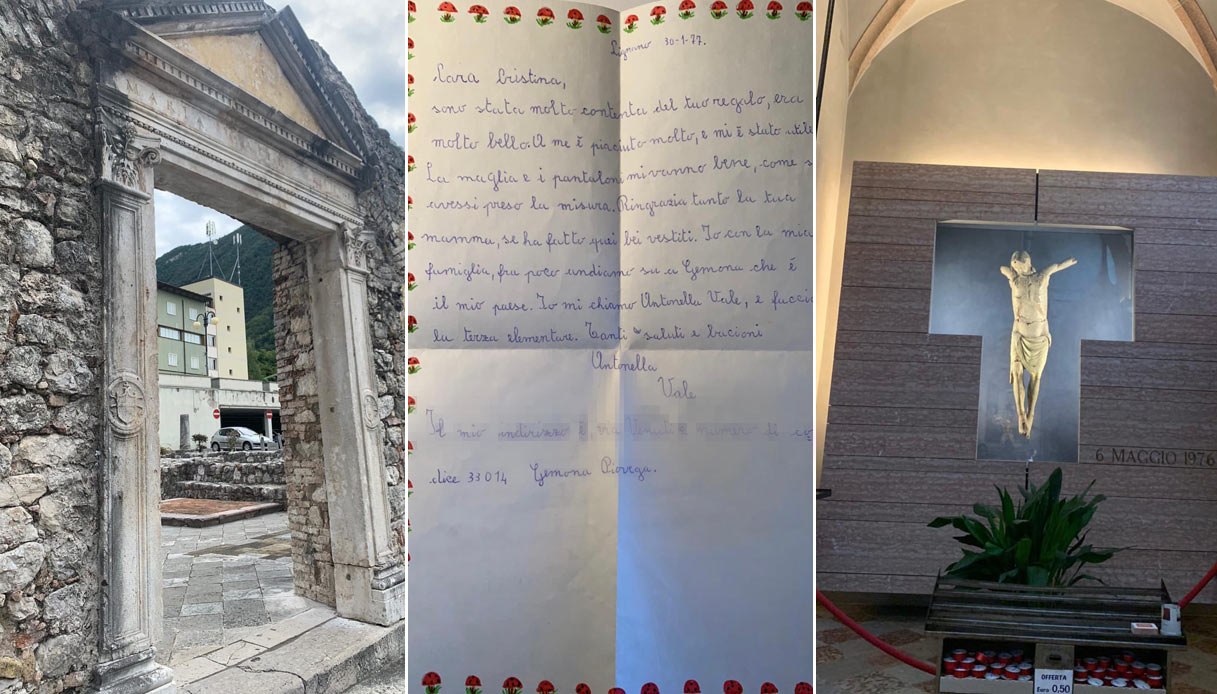 Lignano 30-1-77.
Cara Cristina,
sono stata molto contenta del tuo regalo, era
molto bello. A me è piaciuto molto, e mi è stato utile
La maglia e i pantaloni mi vanno bene, come s
avessi preso la misura. Ringrazia tanto la tua
mamma, se ha fatto quei bei vestiti. Io con la mia
famiglia, fra poco andiamo su a Gemona che è
il mio paese. Io mi chiamo Antonella Vale, e faccio
la terza elementare. Tanti saluti e bacioni
Antonella
Vale
Il mio indirizzo è, via numero di co
dice 33014 Gemona Piovega.
6 MAGGIO 1976
OFFERTA
Euro 0.50